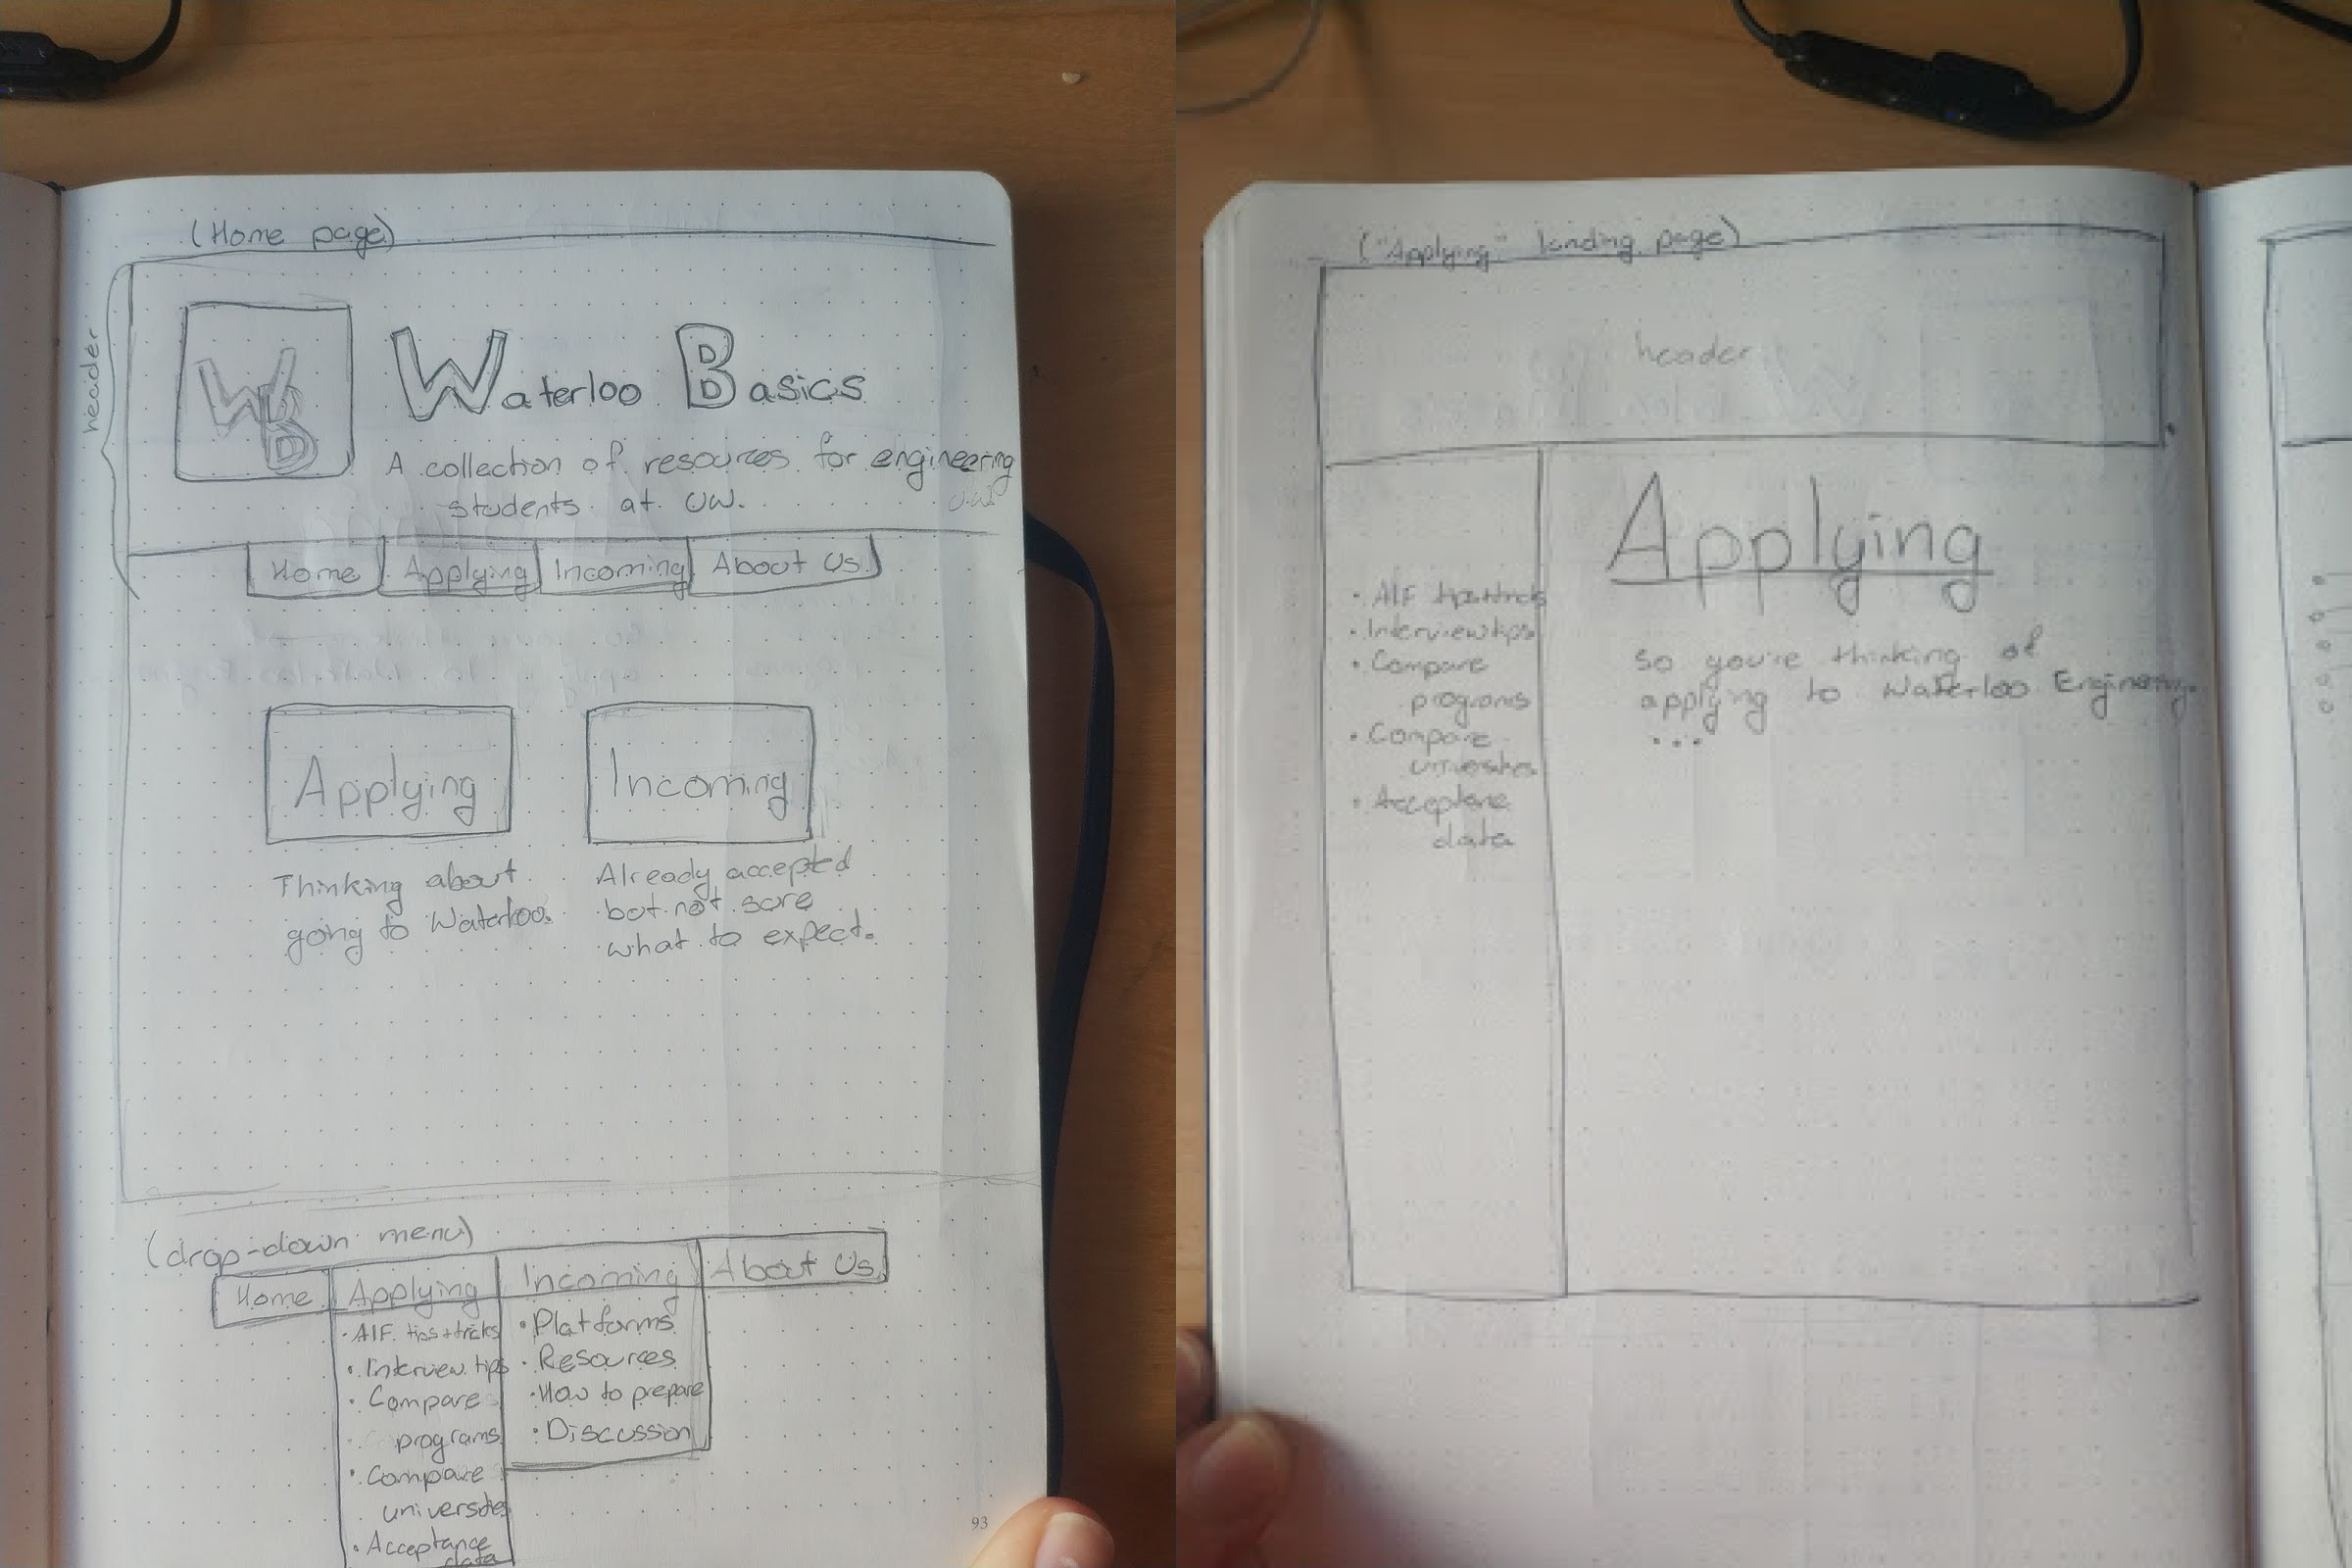 (Home page)
header
WB
Waterloo Basics
A collection of resources for engineering
students at UW.
U.W.
Home Applying Incoming About Us
Applying Incoming
Thinking about
going to Waterloo.
Already accepted
but not sure
what to expect.
(drop-down menu)
Home Applying Incoming About Us
• AIF tips+tricks
• Interview tips
• Compare
programs
• Compare
universites
• Acceptance
data
• Platforms
• Resources
• How to prepare
• Discussion
93
("Applying" landing page)
header
• AIF tips+tricks
• Interview tips
• Compare
programs
• Compare
universites
• Acceptane
data
Applying
So you're thinking of
applying to Waterloo Engineering.
...